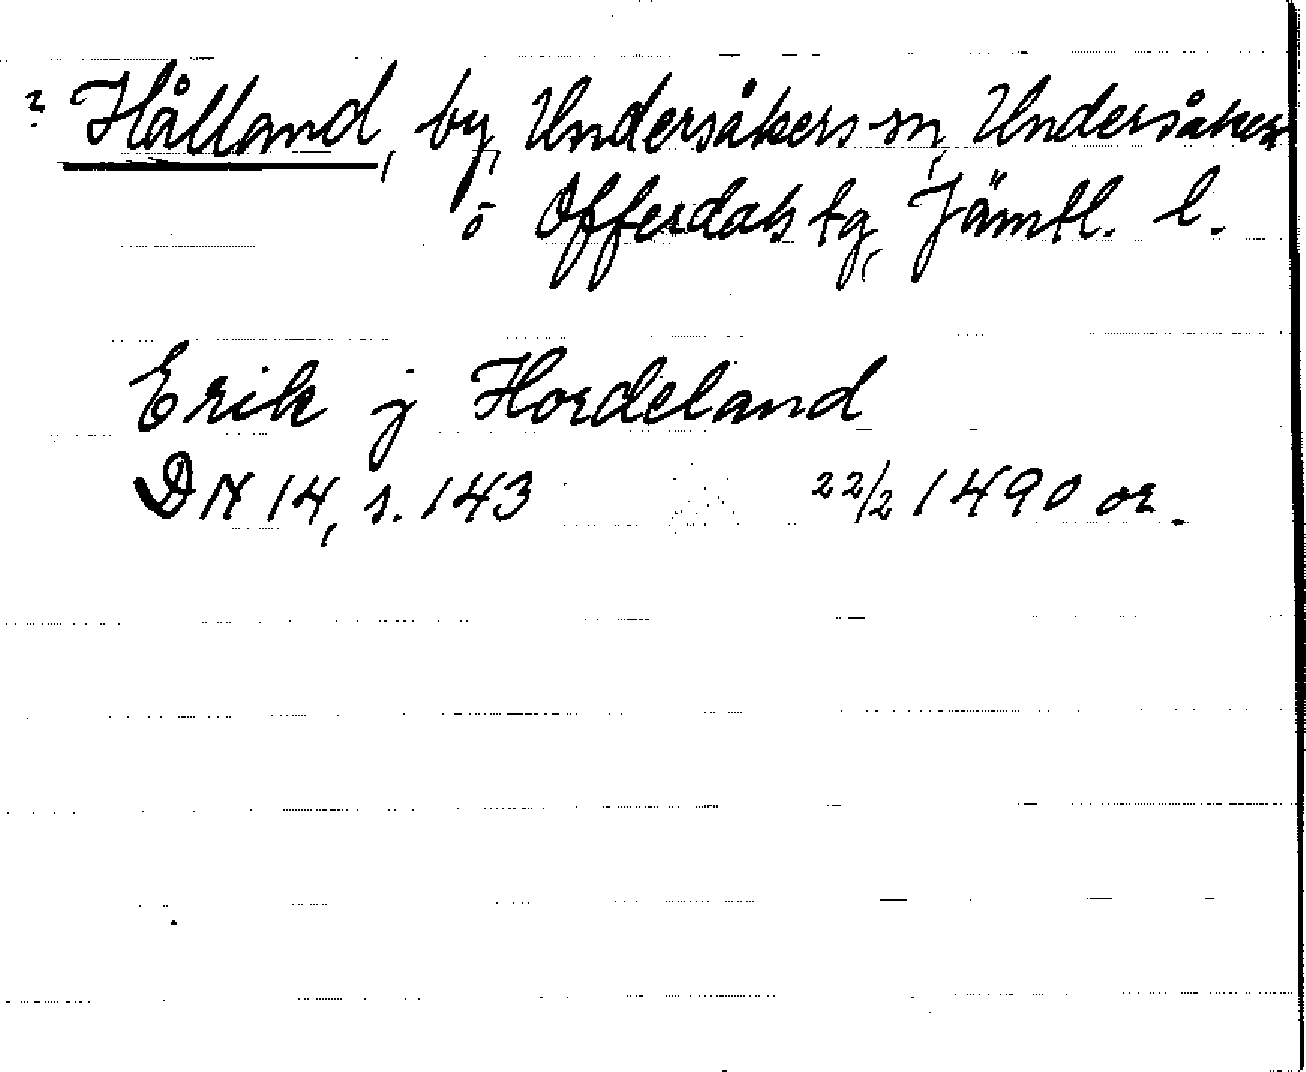 ? Hålland, by, Undersåkers sn, Undersåkers
o Offerdals tg, Jämtl. l.
Erik j Hordeland
DN 14, s. 143 22/2 1490 or.